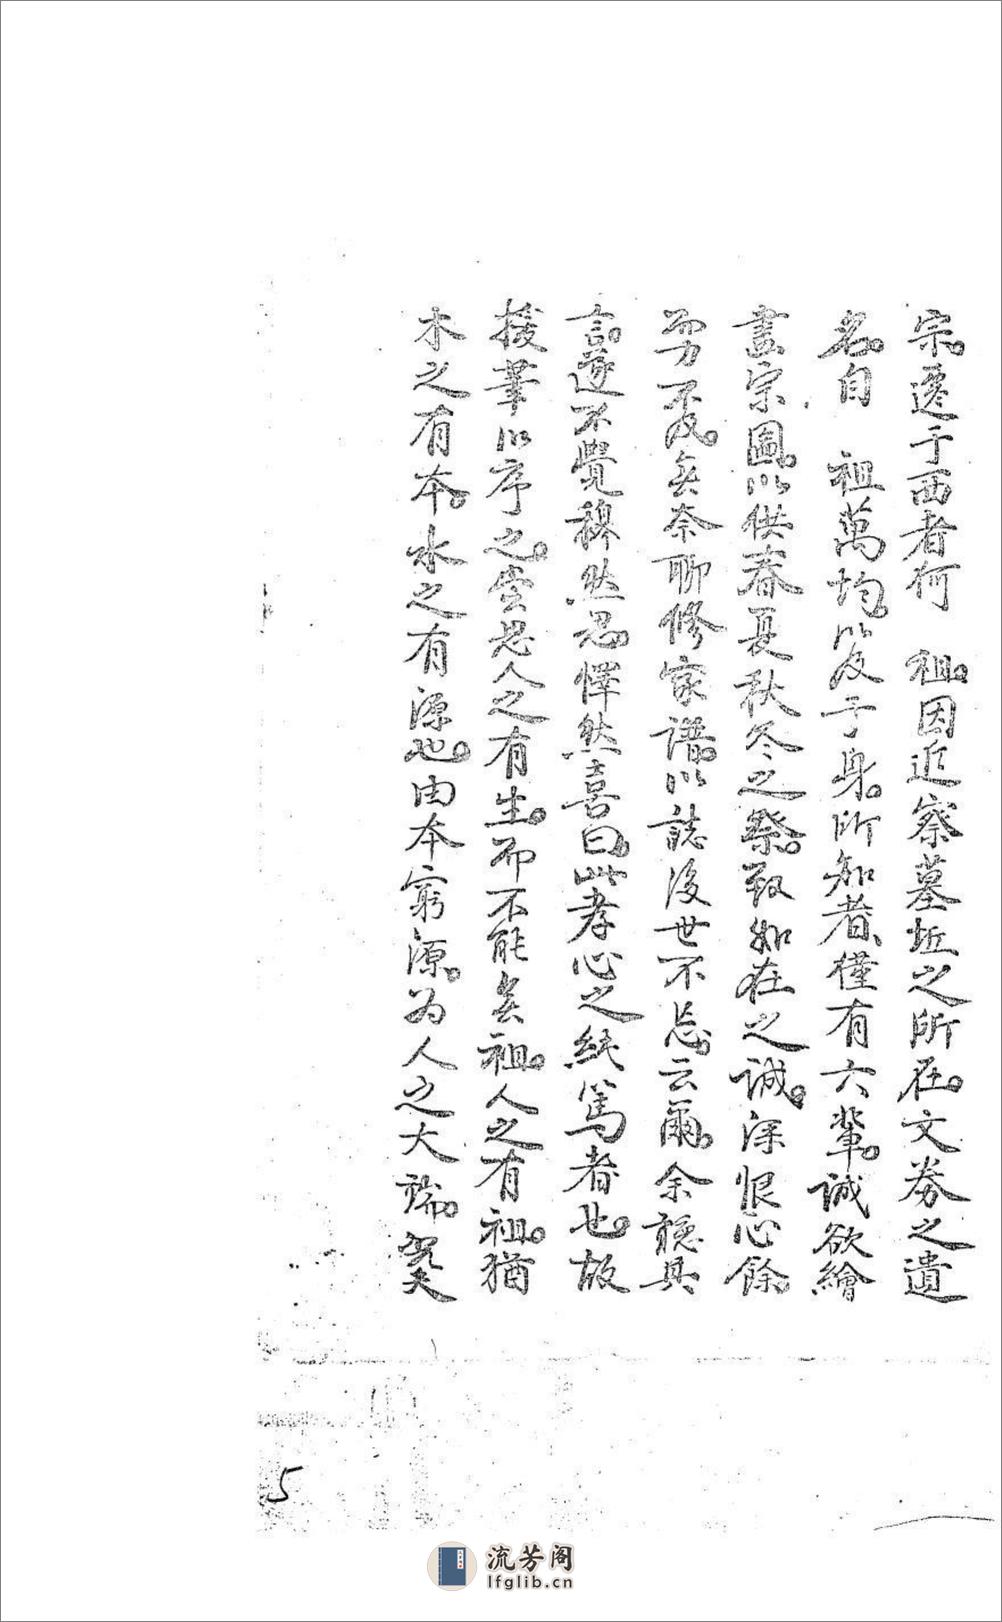 宗。遷于西者何　祖。因近察墓坵之所在。文券之遺
名。自　祖萬均。以及于身。所知者、僅有六輩。誠欲繪
畫宗圖。以供春夏秋冬之祭。致如在之誠。深恨心餘
而力不及。无奈聊修家譜。以誌後世不忘。云爾。余聽其
言。遂不覺穆然思。懌然喜曰。此孝心之純篤者也。故
援筆以序之。嘗思人之有生。而不能无祖。人之有祖。猶
木之有本。水之有源也。由本窮源。为人之大端。奠
5
流芳阁
lfglib.cn